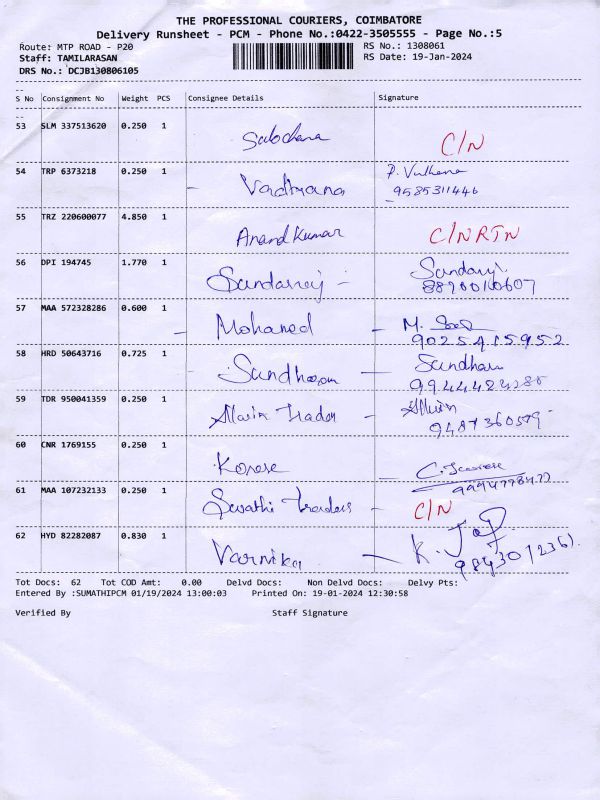 THE PROFESSIONAL COURIERS, COIMBATORE
Delivery Runsheet - PCM - Phone No.:0422-3505555 - Page No.:5
Route: MTP ROAD - P20 RS No.: 1308061
Staff: TAMILARASAN RS Date: 19-Jan-2024
DRS No.: DCJB130806105
S No Consignment No Weight PCS Consignee Details Signature
53 SLM 337513620 0.250 1 C/N
54 TRP 6373218 0.250 1 9585311446
55 TRZ 220600077 4.850 1 Anand Kumar C/N RTN
56 DPI 194745 1.770 1
57 MAA 572328286 0.600 1 Mohamed - M. 9025415952
58 HRD 50643716 0.725 1
59 TDR 950041359 0.250 1
60 CNR 1769155 0.250 1
61 MAA 107232133 0.250 1 Swathi Traders - C/N
62 HYD 82282087 0.830 1 Varnika - K.
Tot Docs: 62 Tot COD Amt: 0.00 Delvd Docs: Non Delvd Docs: Delvy Pts:
Entered By :SUMATHIPCM 01/19/2024 13:00:03 Printed On: 19-01-2024 12:30:58
Verified By Staff Signature